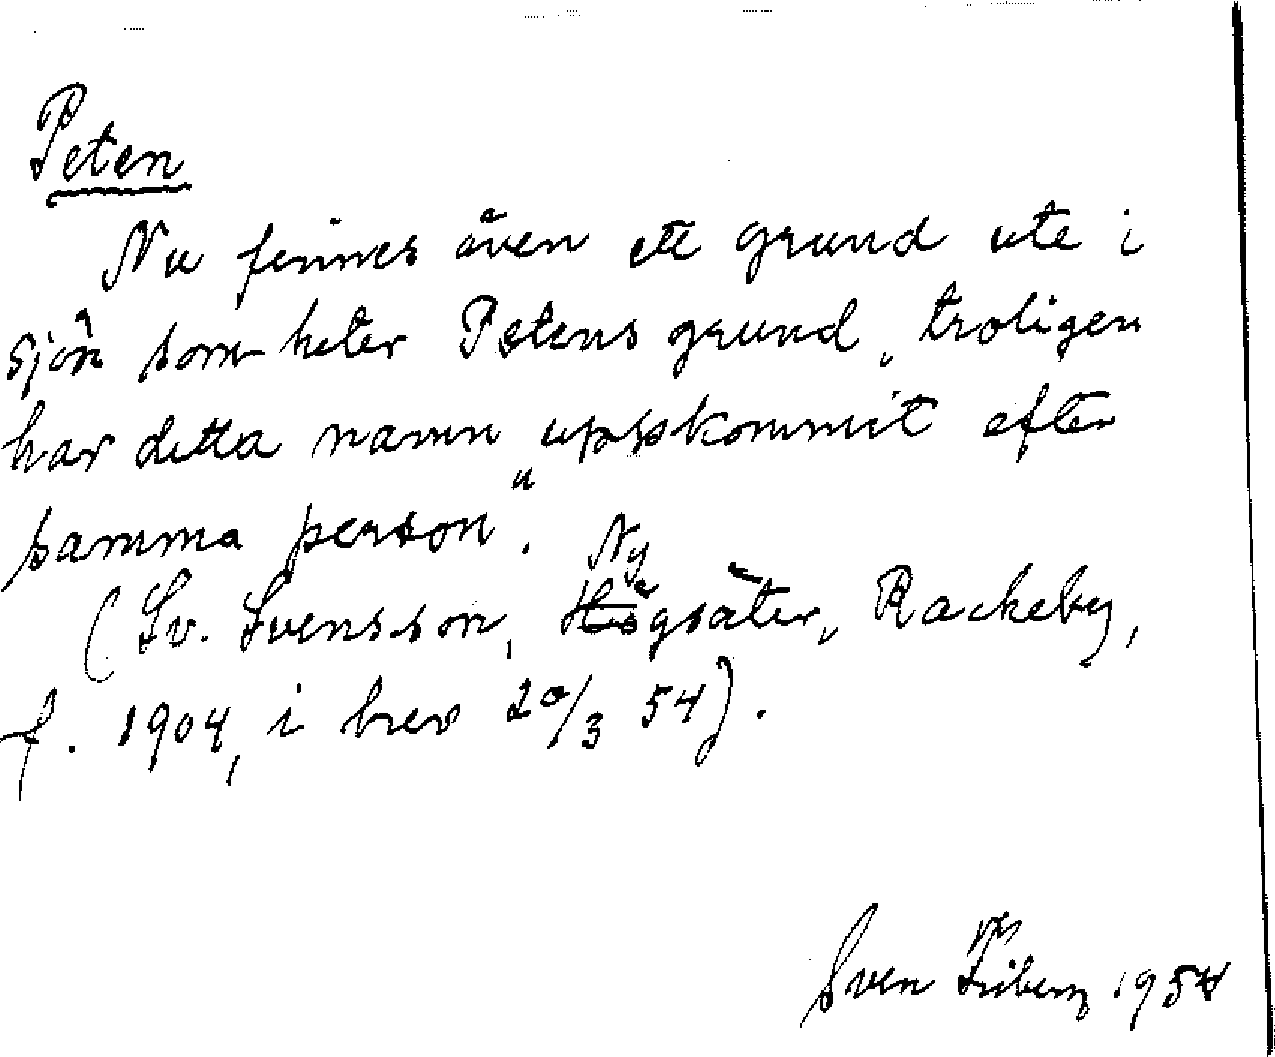 Peten
Nu finnes även ett grund ute i
sjön som heter Petens grund, "troligen
har detta namn uppskommit efter
samma person".
Ny
(Sv. Svensson, Högsäter, Rackeby,
f. 1904, i brev 20/3 54).
Sven 1954